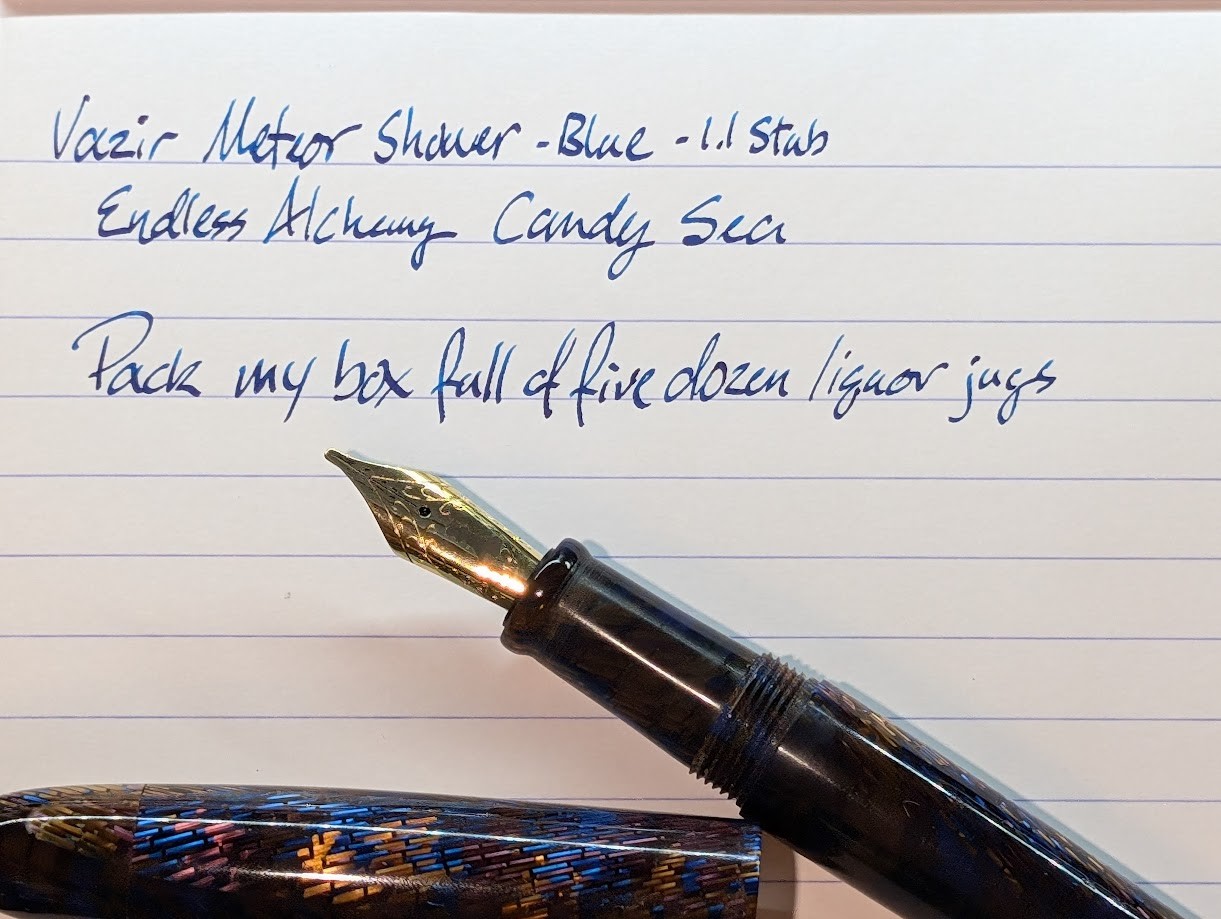 Vazir Meteor Shower - Blue - 1.1 Stub
Endless Alchemy Candy Sea
Pack my box full of five dozen liquor jugs